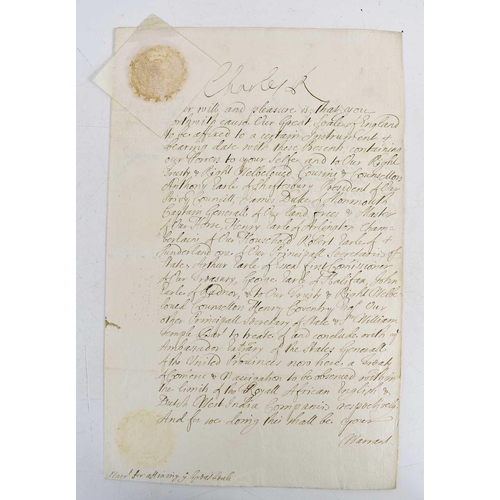 Charles R
Our will and pleasure is that you
forthwith cause Our Great Seale of England
to be affixed to a certain Instrument
bearing date with these Presents containing
our Powers to your Selfe and to Our Right
Trusty & Right Welbeloved Cousins & Counsellors
Anthony Earle of Shaftsbury President of Our
Privy Councill, James Duke of Monmouth
Captain Generall of Our land forces & Master
of Our Horse, Henry Earle of Arlington Cham-
berlain of Our Household Robert Earle of
Sunderland one of Our Principall Secretaries of
State, Arthur Earle of Essex first Comissioner
of Our Treasury, George Earle of Halifax, John
Earle of Radnor, & to Our Trusty & Right Welbe
loved Counsellor Henry Coventry Our
other Principall Secretary of State & Sr William
Temple Bart to treate of and conclude with ye
Ambassador of the States Generall
of the United Provinces now here a Treaty
of Comerce & Navigation to be observed within
the limits of the Royall African English &
Dutch West India Companies respectively
And for so doing this shall be your
Warrant
Warrt for affixing ye Great Seale